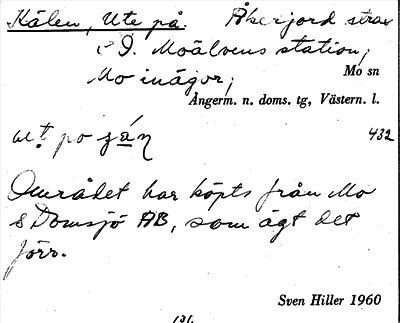 Kälen, Ute på. Åkerjord strax
Ö. Moälvens station,
Mo inägor,
Mo sn
Ångerm. n. doms. tg, Västern. l.
432
Området har köpts från Mo
& Domsjö AB, som ägt det
förr.
Sven Hiller 1960